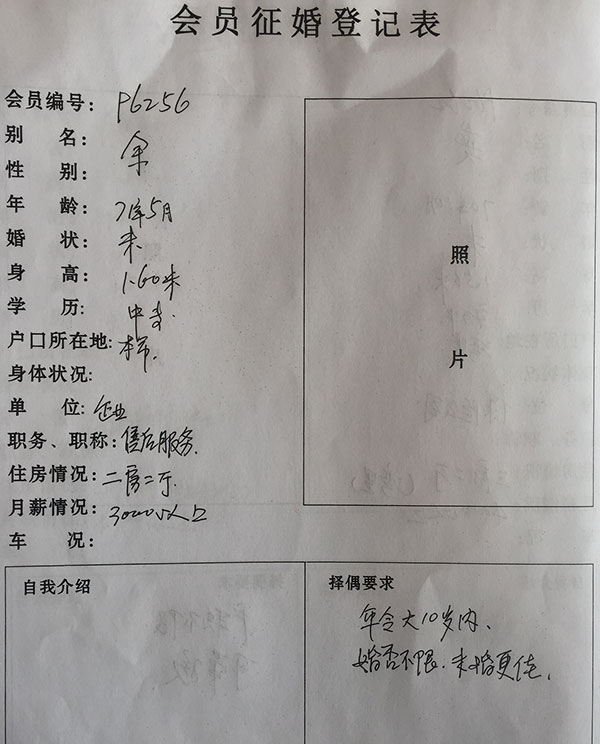 会员征婚登记表
会员编号: P6256
别 名: 余
性 别:
年 龄: 71年5月
婚 状: 未.
身 高: 1.60米
学 历: 中专.
户口所在地: 本市.
身体状况:
单 位: 企业
职务、职称: 售后服务.
住房情况: 二房二厅.
月薪情况: 3000以上
车 况:
照
片
自我介绍
择偶要求
年令大10岁内、
婚否不限.未婚更佳.